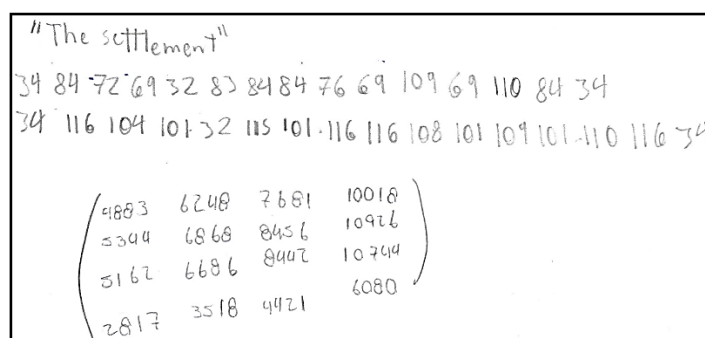 "The settlement"
34 84 72 69 32 83 84 84 76 69 109 69 110 84 34
34 116 104 101 32 115 101 116 116 108 101 109 101 110 116 34
4883 6248 7681 10018
5344 6868 8456 10926
5162 6686 8442 10744
2817 3518 4421 6080